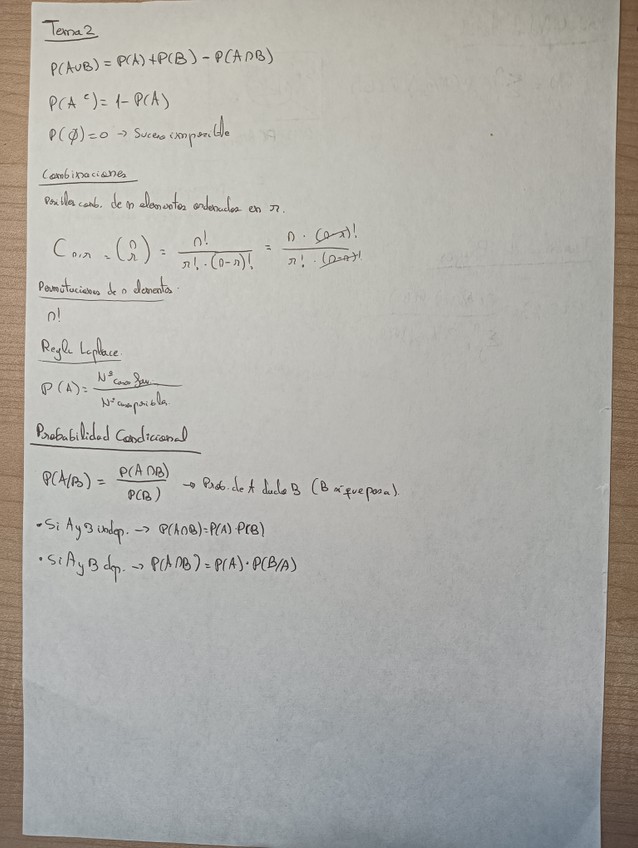 Tema 2
P(A∪B) = P(A) + P(B) - P(A∩B)
P(A^c) = 1 - P(A)
P(∅) = 0 → Suceso imposible
Combinaciones
Posibles comb. de n elementos ordenados en r.
C n,r = (n r) = n! / r! · (n-r)! = n · (n-r)! / r! · (n-r)!
Permutaciones de n elementos
n!
Regla Laplace
P(A) = Nº caso fav / Nº caso posible
Probabilidad Condicional
P(A/B) = P(A∩B) / P(B) → Prob. de A dado B (B que pasa).
• Si A y B indep. → P(A∩B) = P(A) · P(B)
• Si A y B dep. → P(A∩B) = P(A) · P(B/A)